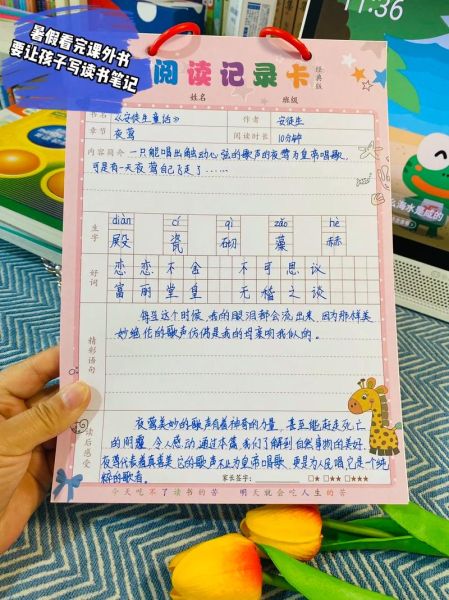 暑假看完课外书
要让孩子写读书笔记
11:36
阅读记录卡
经典版
姓名 班级
书名 《安徒生童话》 作者 安徒生
章节 夜莺 阅读时长 10分钟
内容简介 一只能唱出触动心弦的歌声的夜莺为皇帝唱歌,
可是有一天夜莺自己飞走了……
生字
diàn cí qì zǎo hè
殿 瓷 砌 藻 赫
好词
恋恋不舍 不可思议
富丽堂皇 无稽之谈
精彩语句
每当这个时候,我的眼泪都会流出来,因为那样美
妙绝伦的歌声仿佛是我的母亲吻我似的。
读后感受
夜莺美妙的歌声有着神奇的力量,甚至能赶走死亡
的阴霾,令人感动,通过本篇,我们了解到自然事物的美好,
夜莺代表着真善美,它的歌声不止为皇帝唱歌,更是为人民唱,它是一个纯
粹的歌者。
家长签字: □★ □★★ □★★★
今天吃不了读书的苦 明天就会吃人生的苦
么海水是咸的